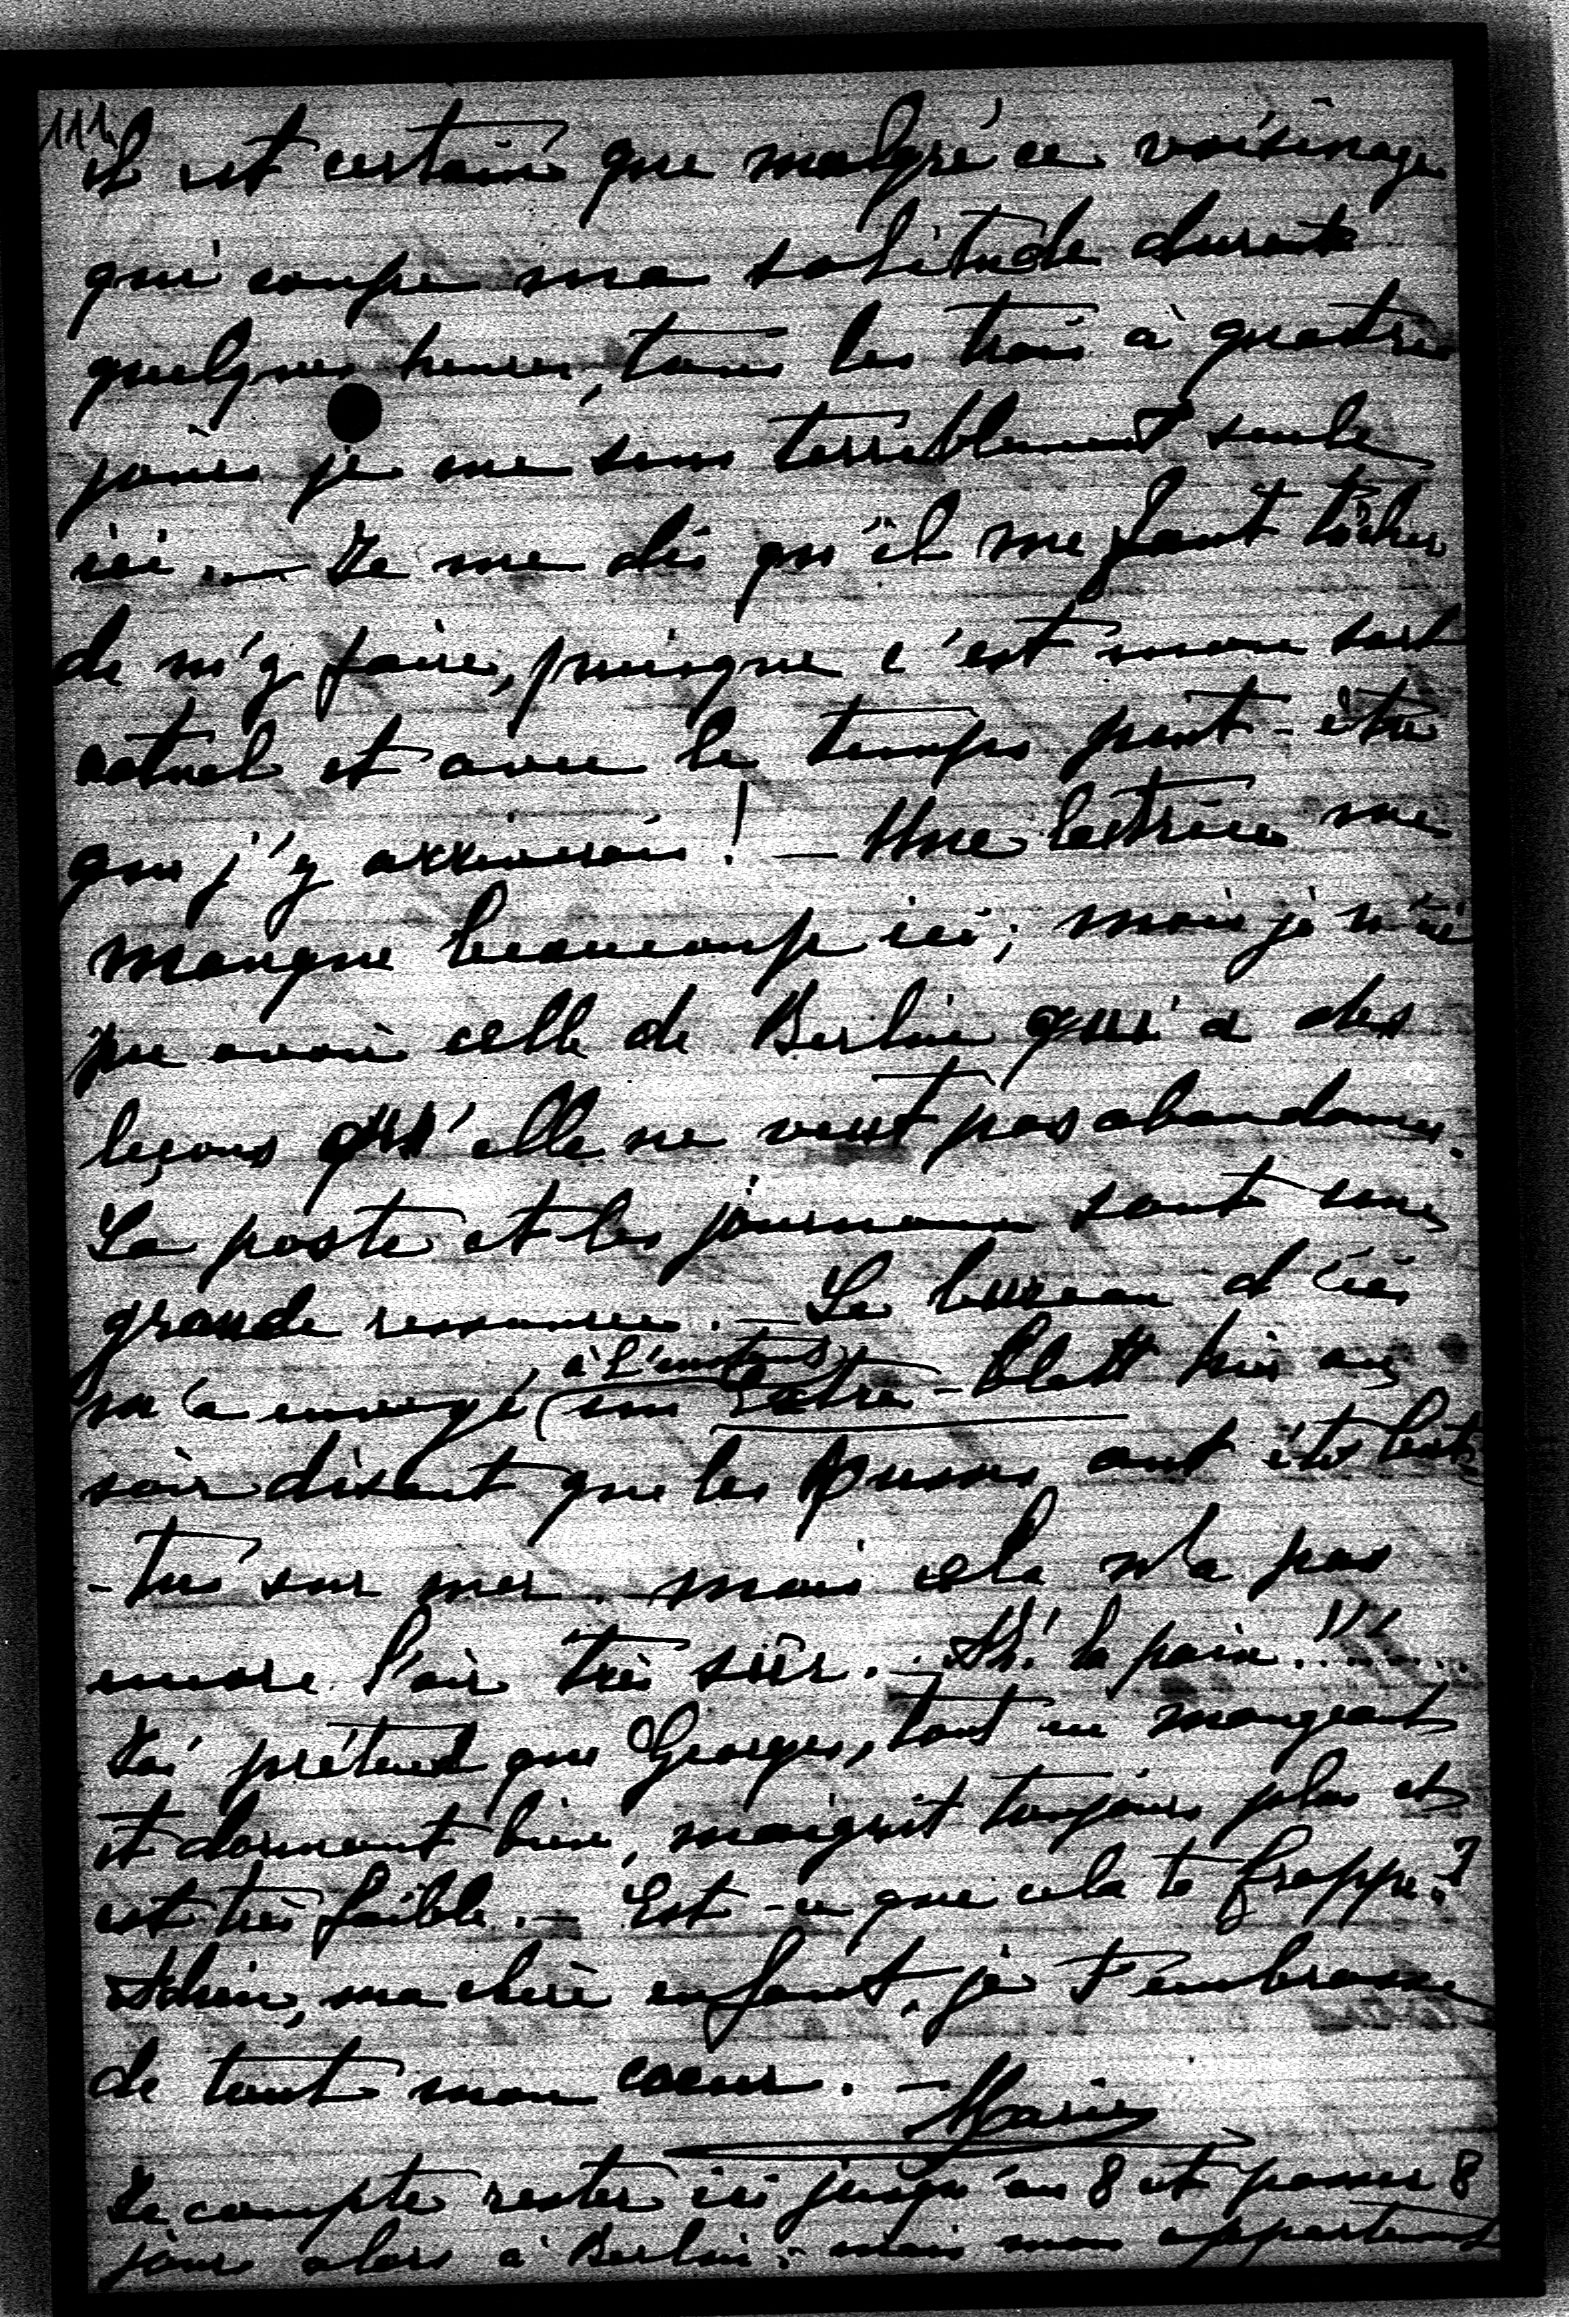 111.
il est certain que malgré ce voisinage
qui coupe ma solitude durant
quelques heures, tous les trois à quatre
jours je me sens terriblement seule
ici. — Je me dis qu'il me faut tâcher
de m'y faire, puisque c'est mon sort
actuel et avec le temps peut-être
que j'y arriverais! — Une lectrice me
manque beaucoup ici; mais je n'ai
pu avoir celle de Berlin qui a des
leçons qu'elle ne veut pas abandonner.
La poste et les journaux sont une
grande ressource. — Le bureau d'ici
à l'instant
m'a envoyé un Extra-blatt hier au
soir disant que les Russes ont été bat-
-tus sur mer. — mais cela n'a pas
encore l'air très sûr. — Ah! la paix!!!....
prétend que Georges, tout en mangeant
et dormant bien, maigrit toujours plus et
est très faible. — Est-ce que cela te frappe?
Adieu, ma chère enfant, je t'embrasse
de tout mon coeur. — Marie
Je compte rester ici jusqu'au 8 et passer 8
jours alors à Berlin; mais mon appartement